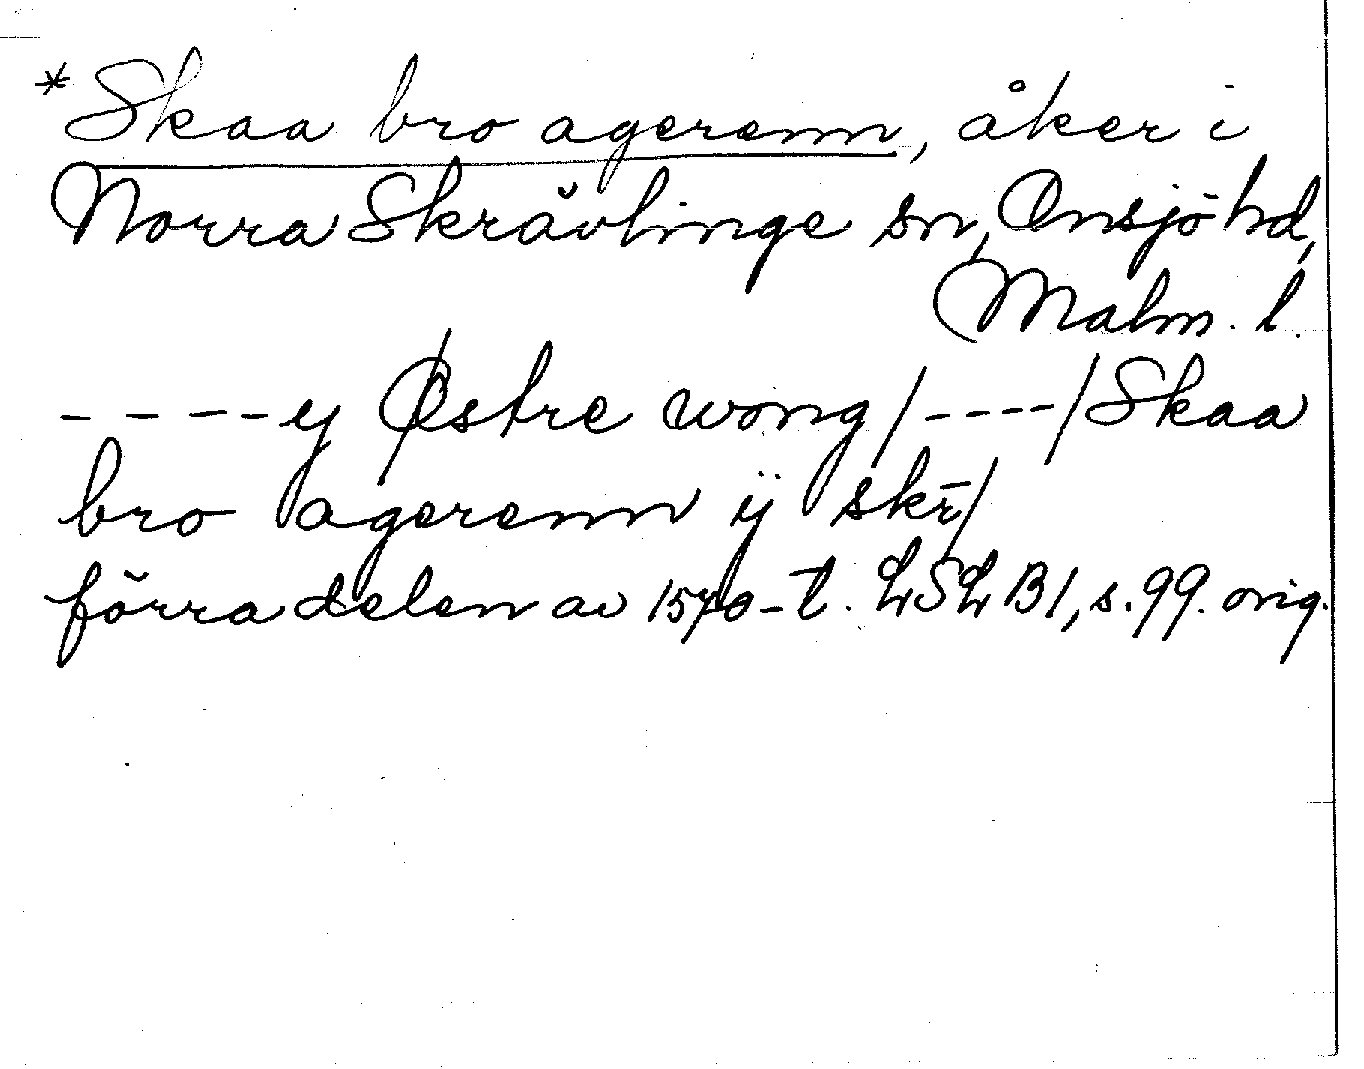 *Skaa bro agerenn, åker i
Norra Skrävlinge sn, Onsjö hd,
Malm. l.
- - - - ey Østre wong/----/Skaa
bro agerenn ij skr̄/
förra delen av 1570-t. LSL B1, s. 99. orig.